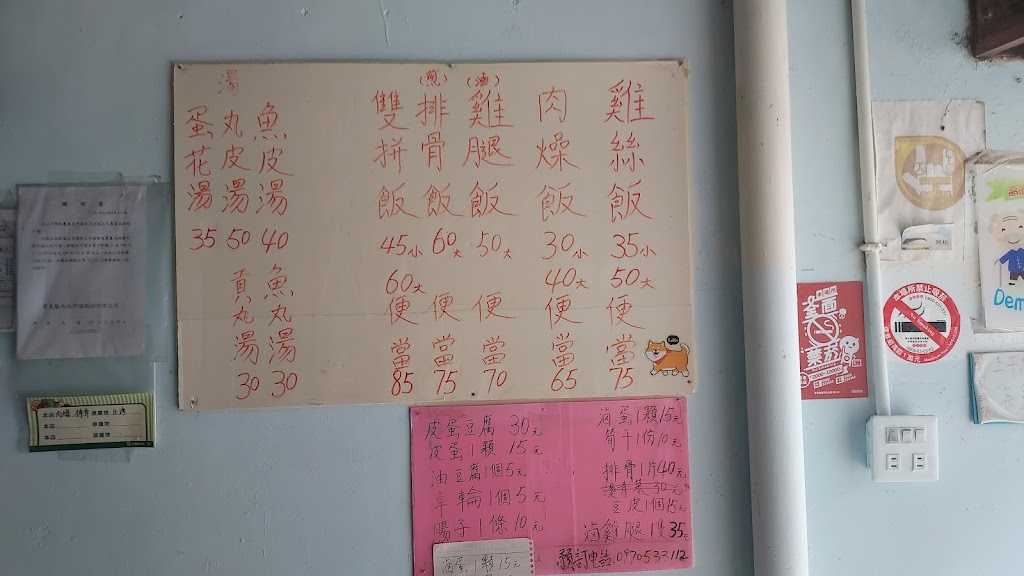 雞絲飯 35小 50大 便當 75
肉燥飯 30小 40大 便當 65
(滷)雞腿飯 50大 便當 70
(煎)排骨飯 60大 便當 75
雙拼飯 45小 60大 便當 85
湯
魚皮湯 40
丸皮湯 50
蛋花湯 35
魚丸湯 30
貢丸湯 30
皮蛋豆腐 30元
皮蛋1顆 15元
油豆腐1個5元
1個5元
腸子1條10元
滷蛋1顆15元
滷蛋1顆15元
筍干1份10元
排骨1片40元
燙青菜 30元
豆皮1個15元
滷雞腿1隻35元
預訂電話:0970533112
本店肉燥 排骨 原產地 台灣
本店 原產地
本店 原產地
全面禁菸
本場所禁止吸菸
Dem